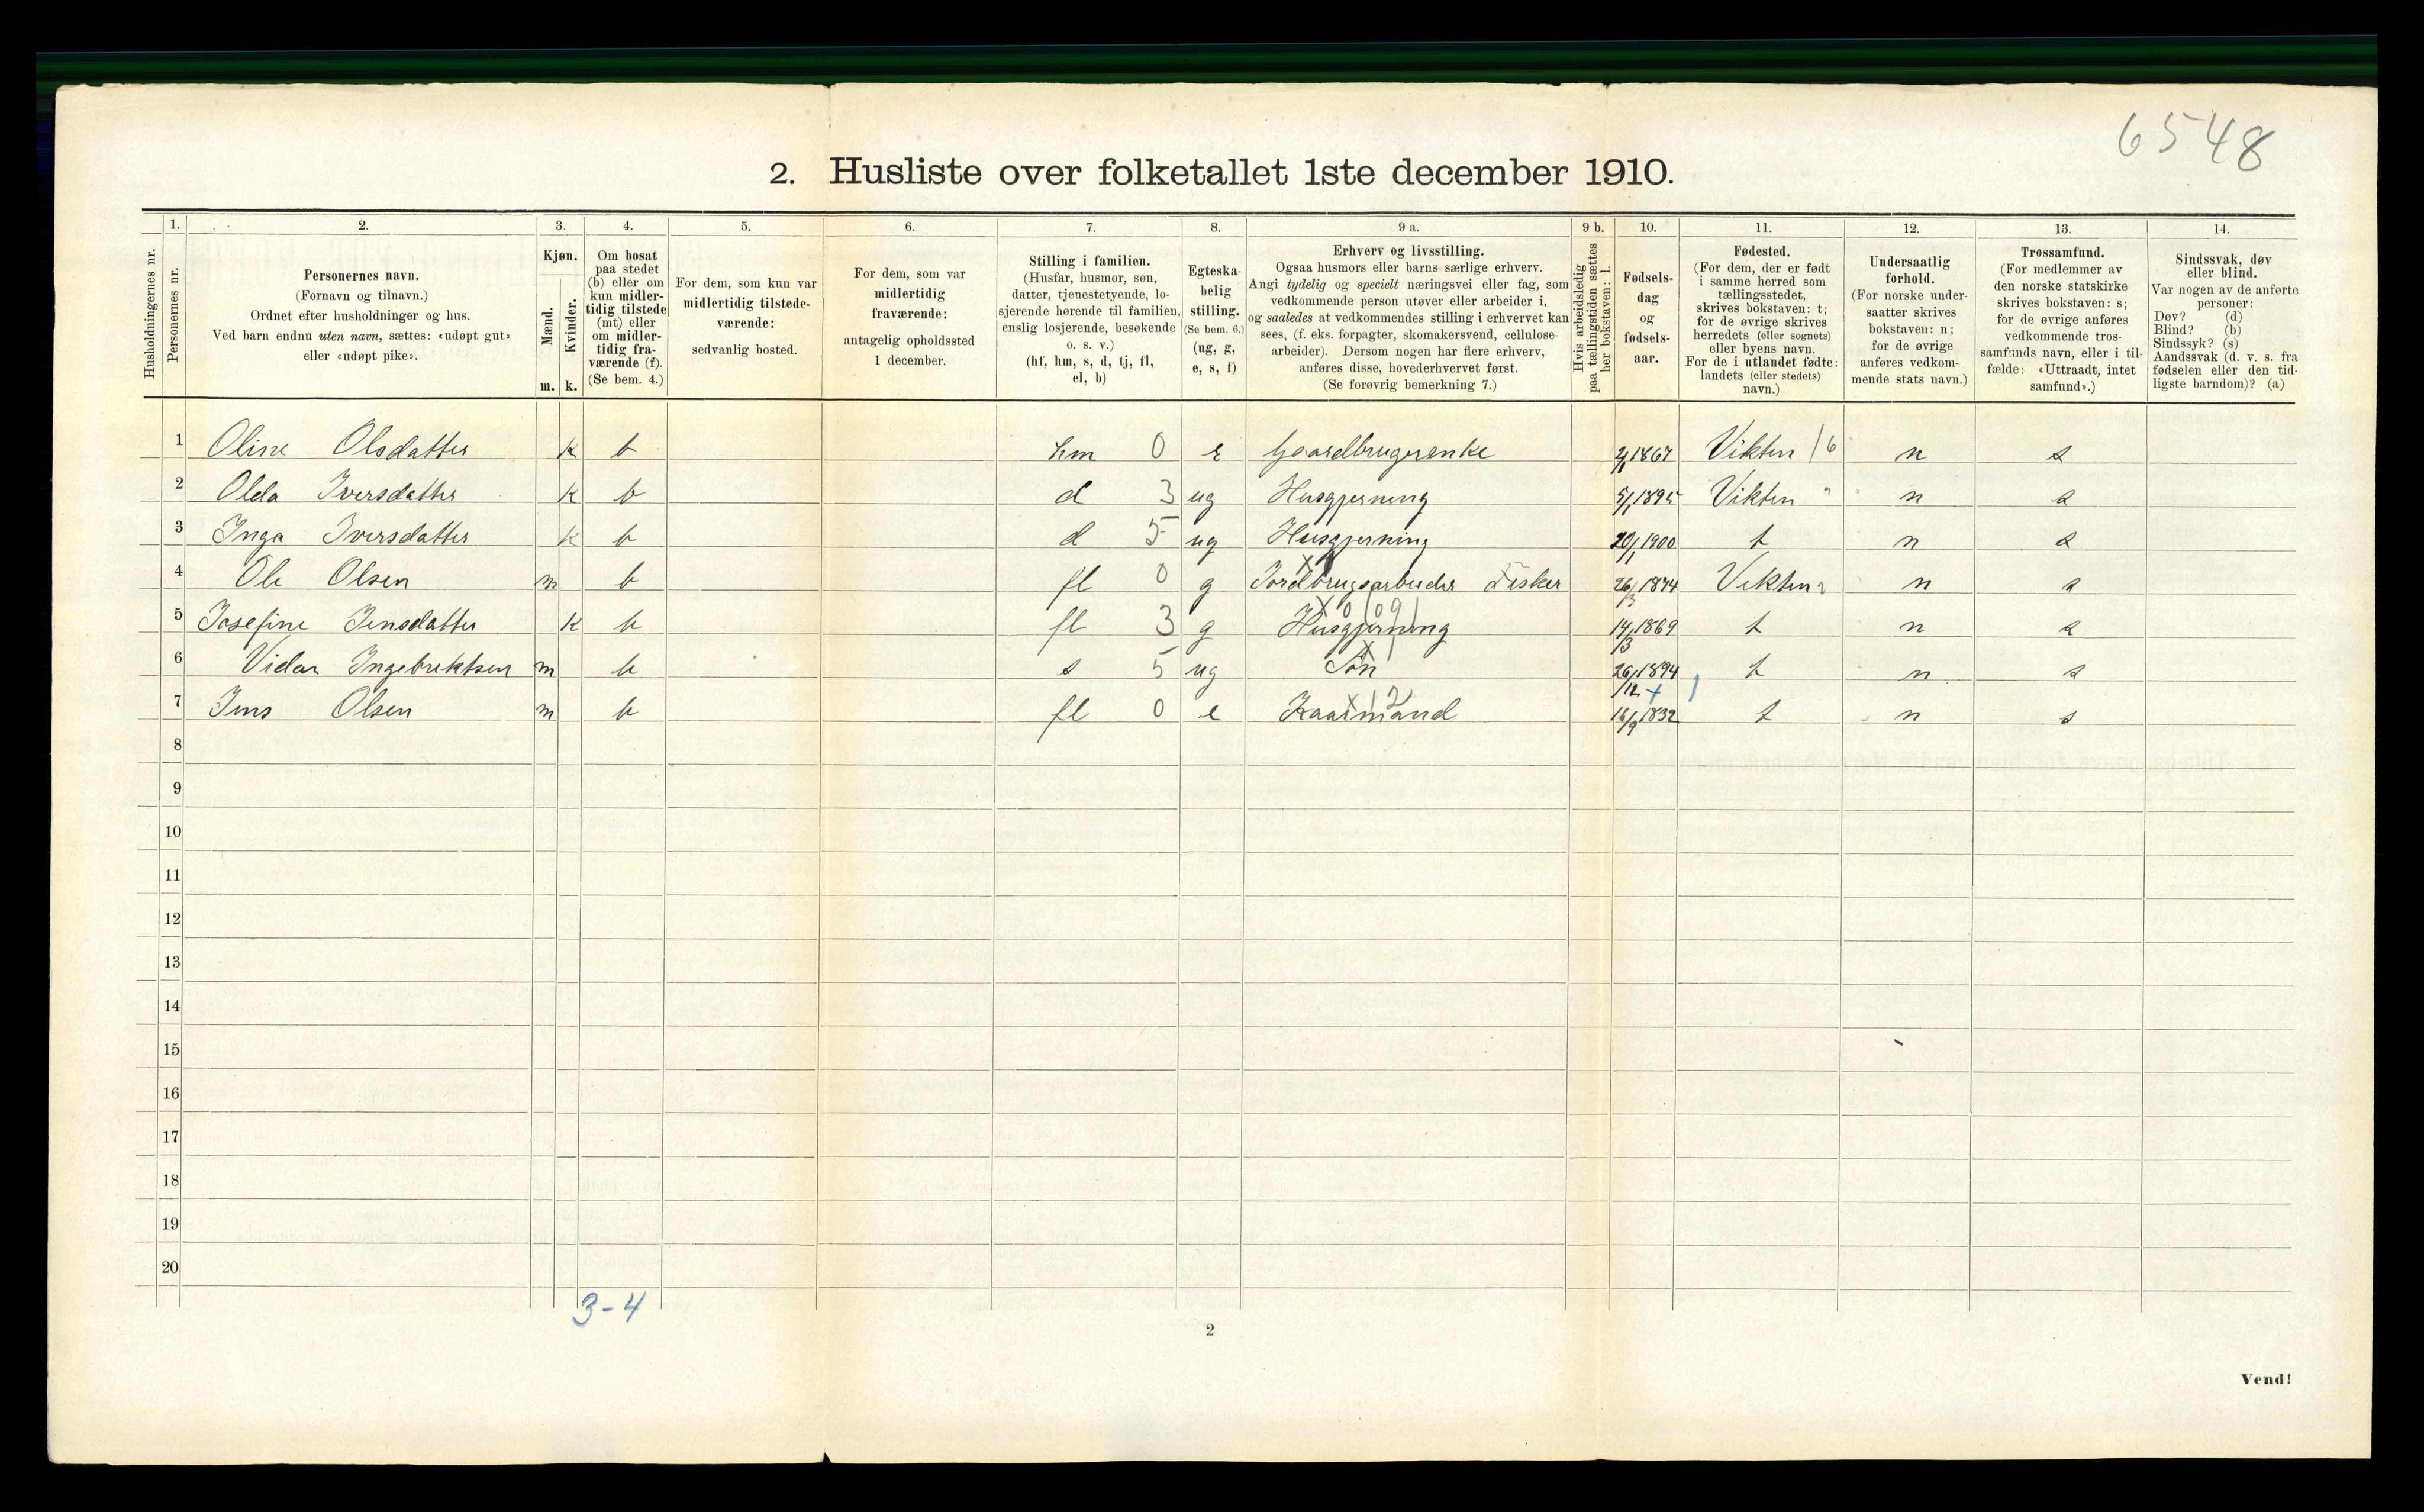 6548
2. Husliste over folketallet 1ste december 1910.
Husholdningernes nr.
1.
Personernes nr.
2.
Personernes navn.
(Fornavn og tilnavn.)
Ordnet efter husholdninger og hus.
Ved barn endnu uten navn, sættes: «udøpt gut»
eller «udøpt pike».
3.
Kjøn.
Mænd.
Kvinder.
m. k.
4.
Om bosat
paa stedet
(b) eller om
kun midler-
tidig tilstede
(mt) eller
om midler-
tidig fra-
værende (f).
(Se bem. 4.)
5.
For dem, som kun var
midlertidig tilstede-
værende:
sedvanlig bosted.
6.
For dem, som var
midlertidig
fraværende:
antagelig opholdssted
1 december.
7.
Stilling i familien.
(Husfar, husmor, søn,
datter, tjenestetyende, lo-
sjerende hørende til familien,
enslig losjerende, besøkende
o. s. v.)
(hf, hm, s, d, tj, fl,
el, b)
8.
Egteska-
belig
stilling.
(Se bem. 6.)
(ug, g,
e, s, f)
9 a.
Erhverv og livsstilling.
Ogsaa husmors eller barns særlige erhverv.
Angi tydelig og specielt næringsvei eller fag, som
vedkommende person utøver eller arbeider i,
og saaledes at vedkommendes stilling i erhvervet kan
sees, (f. eks. forpagter, skomakersvend, cellulose-
arbeider). Dersom nogen har flere erhverv,
anføres disse, hovederhvervet først.
(Se forøvrig bemerkning 7.)
9 b.
Hvis arbeidsledig
paa tællingstiden sættes
her bokstaven: l.
10.
Fødsels-
dag
og
fødsels-
aar.
11.
Fødested.
(For dem, der er født
i samme herred som
tællingsstedet,
skrives bokstaven: t;
for de øvrige skrives
herredets (eller sognets)
eller byens navn.
For de i utlandet fødte:
landets (eller stedets)
navn.)
12.
Undersaatlig
forhold.
(For norske under-
saatter skrives
bokstaven: n;
for de øvrige
anføres vedkom-
mende stats navn.)
13.
Trossamfund.
(For medlemmer av
den norske statskirke
skrives bokstaven: s;
for de øvrige anføres
vedkommende tros-
samfunds navn, eller i til-
fælde: «Uttraadt, intet
samfund».)
14.
Sindssvak, døv
eller blind.
Var nogen av de anførte
personer:
Døv? (d)
Blind? (b)
Sindssyk? (s)
Aandssvak (d. v. s. fra
fødselen eller den tid-
ligste barndom)? (a)
1 Oline Olsdatter k b hm 0 e Gaardbrugerenke 1867 Vikten 16 n s
2 Olda Iversdatter k b d 3 ug Husgjerning 5/1 1895 Vikten " n s
3 Inga Iversdatter k b d 5 ug Husgjerning 20/1 1900 t n s
4 Ole Olsen m b fl 0 g Jordbrugsarbeider Fisker 26/3 1874 Vikten " n s
5 Josefine Jensdatter k b fl 3 g Husgjerning 14/3 1869 t n s
6 Vidar Ingebrektsen m b s 5 ug Søn 26/12 1894 t n s
7 Jens Olsen m b fl 0 e Kaarmand 1832 t n s
8
9
10
11
12
13
14
15
16
17
18
19
20
3-4
2
Vend!